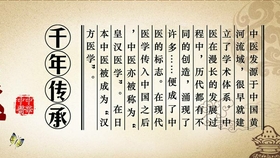 中医发源于中国黄
河流域，很早就建
立了学术体系。中
医在漫长的发展过
程中，历代都有不
同的创造，涌现了
许多……便成了中
医的标志。在现代
医学传入中国之后
，中医亦被称为“
皇汉医学”。在日
本中医被成为“汉
方医学”。
千年传承